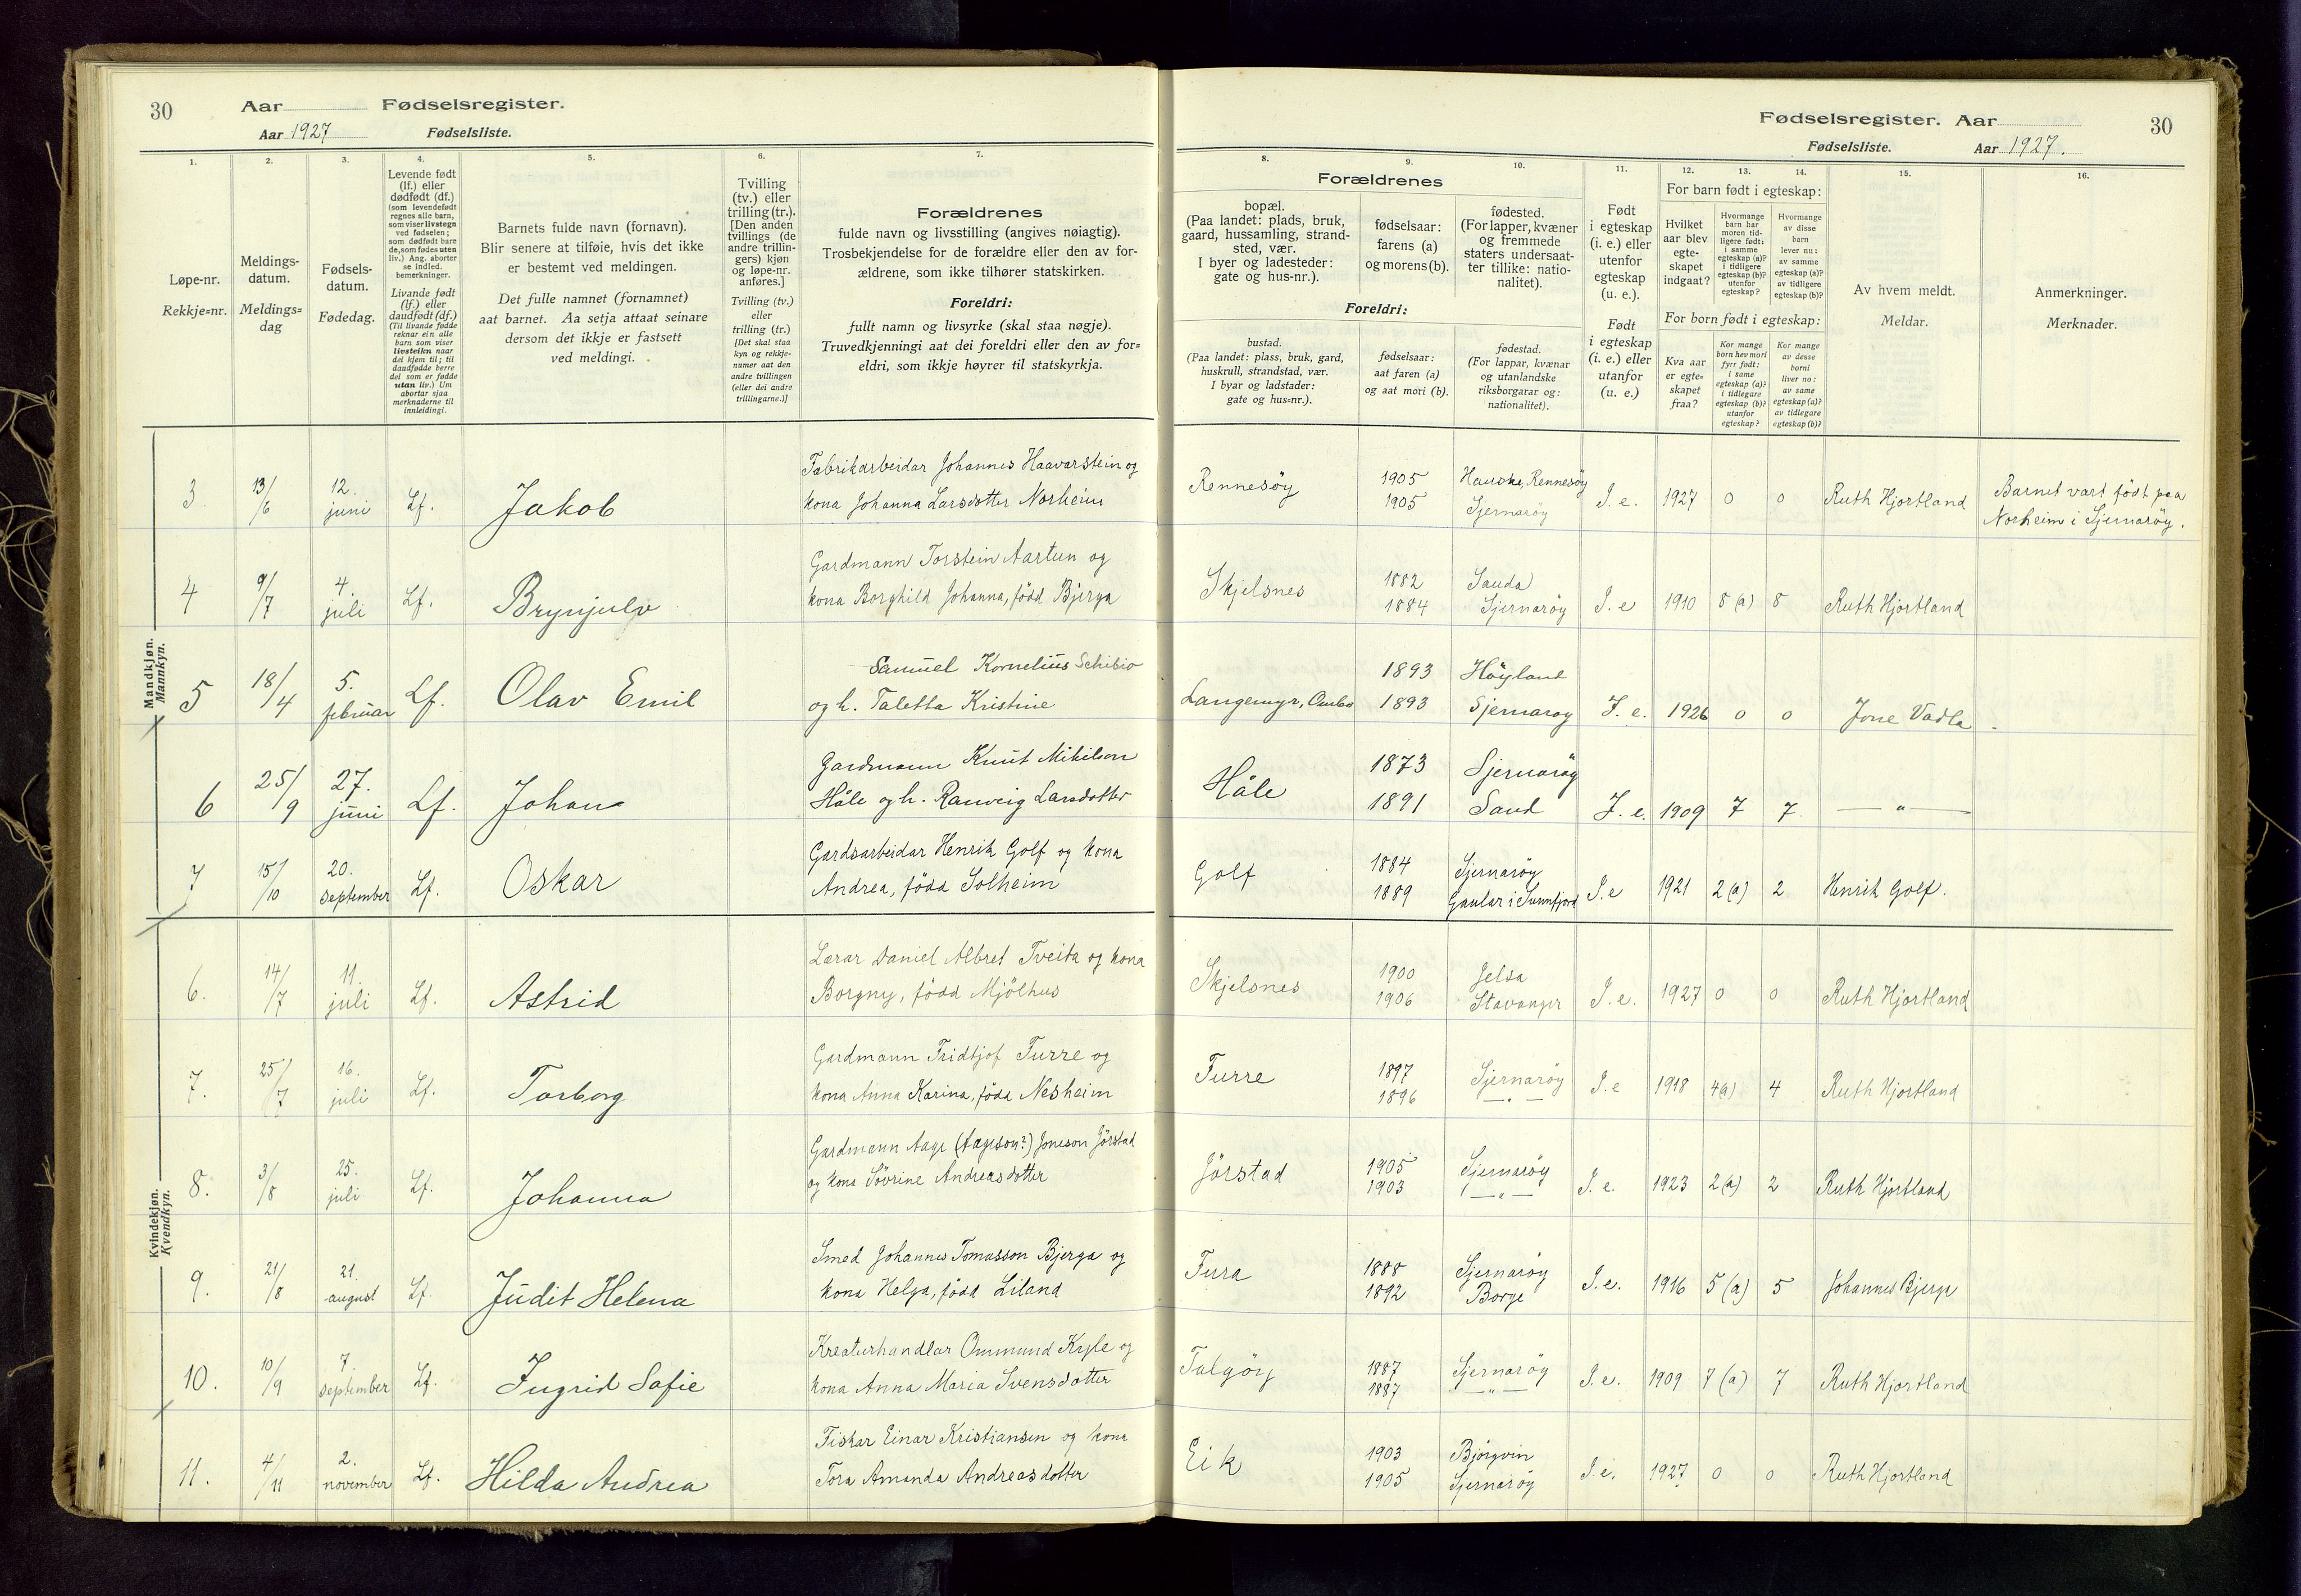 30 Aar Fødselsregister.
Aar 1927 Fødselsliste.
Fødselsregister. Aar 30
Fødselsliste. Aar 1927.
1. 2. 3. 4. 5. 6. 7.
Løpe-nr.
Rekkje=nr.
Meldings-
datum.
Meldings=
dag
Fødsels-
datum.
Fødedag.
Levende født
(lf.) eller
dødfødt (df.)
(som levendefødt
regnes alle barn,
som viser livstegn
ved fødselen;
som dødfødt bare
de, som fødes uten
liv.) Ang. aborter
se indled.
bemerkninger.
Livande født
(lf.) eller
daudfødt (df.)
(Til livande fødde
reknar ein alle
barn som viser
livsteikn naar
dei kjem til; til
daudfødde berre
dei som er fødde
utan liv.) Um
abortar sjaa
merknaderne til
innleidingi.
Barnets fulde navn (fornavn).
Blir senere at tilføie, hvis det ikke
er bestemt ved meldingen.
Det fulle namnet (fornamnet)
aat barnet. Aa setja attaat seinare
dersom det ikkje er fastsett
ved meldingi.
Tvilling
(tv.) eller
trilling (tr.).
[Den anden
tvillings (de
andre trillin-
gers) kjøn
og løpe-nr.
anføres.]
Tvilling (tv.)
eller
trilling (tr.)
[Det skal staa
kyn og rekkje-
numer aat den
andre tvillingen
(eller dei andre
trillingarne.)]
Forældrenes
fulde navn og livsstilling (angives nøiagtig).
Trosbekjendelse for de forældre eller den av for-
ældrene, som ikke tilhører statskirken.
Foreldri:
fullt namn og livsyrke (skal staa nøgje).
Truvedkjenningi aat dei foreldri eller den av for=
eldri, som ikkje høyrer til statskyrkja.
8. 9. 10. 11. 12. 13. 14. 15. 16.
Forældrenes
bopæl.
(Paa landet: plads, bruk,
gaard, hussamling, strand-
sted, vær.
I byer og ladesteder:
gate og hus-nr.).
fødselsaar:
farens (a)
og morens (b).
fødested.
(For lapper, kvæner
og fremmede
staters undersaat-
ter tillike: natio-
nalitet).
Foreldri:
bustad.
(Paa landet: plass, bruk, gard,
huskrull, strandstad, vær.
I byar og ladstader:
gate og hus=nr.).
fødselsaar:
aat faren (a)
og aat mori (b).
fødestad.
(For lappar, kvænar
og utanlandske
riksborgarar og:
nationalitet).
Født
i egteskap
(i. e.) eller
utenfor
egteskap
(u. e.).
Født
i egteskap
(i. e.) eller
utanfor
(u. e.)
For barn født i egteskap:
Hvilket
aar blev
egte-
skapet
indgaat?
Hvormange
barn har
moren tid-
ligere født:
i samme
egteskap (a)?
i tidligere
egteskap (b)?
utenfor
egteskap?
Hvormange
av disse
barn
lever nu:
av samme
egteskap (a)?
av tidligere
egteskap (b)?
For born født i egteskap:
Kva aar
er egte=
skapet
fraa?
Kor mange
born hev mori
fyrr født:
i same
egteskap (a)?
i tidlegare
egteskap (b)?
utanfor
egteskap?
Kor mange
av desse
borni
liver no:
av same
egteskap (a)?
av tidlegare
egteskap (b)?
Av hvem meldt.
Meldar.
Anmerkninger.
Merknader.
Mandkjøn.
Mannkyn.
3. 13/6 12. juni Lf. Jakob
Fabrikarbeidar Johannes Haavarstein og
kona Johanna Larsdotter Norheim
Rennesöy 1905 1905 Hauske, Rennesöy Sjernaröy I. e. 1927 0 0 Ruth Hjortland
Barnet vart födt paa
Norheim i Sjernaröy.
4 9/7 4. juli Lf. Brynjulv
Gardmann Torstein Aartun og
kona Borghild Johanna, född Bjerga
Skjelsnes 1882 1884 Sauda Sjernaröy I. e 1910 8 (a) 8 Ruth Hjortland
5 18/4 5. februar Lf. Olav Emil
Samuel Kornelius Schibio
og h. Taletta Kristine
Langemyr, Ombo 1893 1893 Höyland Sjernaroy I. e. 1926 0 0 Jone Vadla
6 25/9 27. juni Lf. Johan
Gardmann Knut Mikelson
Håle og h. Ranveig Larsdotter
Håle 1873 1891 Sjernaröy Sand I. e. 1909 7 7 — " —
7 15/10 20. september Lf. Oskar
Gardsarbeidar Henrik Golf og kona
Andrea, född Solheim
Golf 1884 1889 Sjernaröy Gaular i Sunnfjord I. e 1921 2 (a) 2 Henrik Golf.
Kvindekjøn.
Kvendkyn.
6. 14/7 11. juli Lf. Astrid
Lærar Daniel Albret Tveita og kona
Borgny, född Mjölhus
Skjelsnes 1900 1906 Jelsa Stavanger I. e. 1927 0 0 Ruth Hjortland
7. 25/7 16. juli Lf. Torborg
Gardmann Fridtjof Furre og
kona Anna Karina, född Nesheim
Furre 1897 1896 Sjernaröy — " — I. e 1918 4(a) 4 Ruth Hjortland
8. 3/8 25. juli Lf. Johanna
Gardmann Aage (Aageson?) Joneson Jörstad
og kona Sövrine Andreasdotter
Jörstad 1905 1903 Sjernaröy — " — I. e. 1923 2(a) 2 Ruth Hjortland
9. 21/8 21. august Lf. Judit Helena
Smed Johannes Tomasson Bjerga og
kona Helga, född Liland
Fura 1888 1892 Sjernaröy Borge I. e. 1916 5 (a) 5 Johannes Bjerga
10. 10/9 7. september Lf. Ingrid Sofie
Kreaturhandlar Ommund Kyle og
kona Anna Maria Svensdotter
Talgöy 1887 1887 Sjernaröy — " — I. e. 1909 7 (a) 7 Ruth Hjortland
11. 4/11 2. november Lf. Hilda Andrea
Fiskar Einar Kristiansen og kona
Tora Amanda Andreasdotter
Eik 1903 1905 Björgvin Sjernaröy I. e. 1927 0 0 Ruth Hjortland